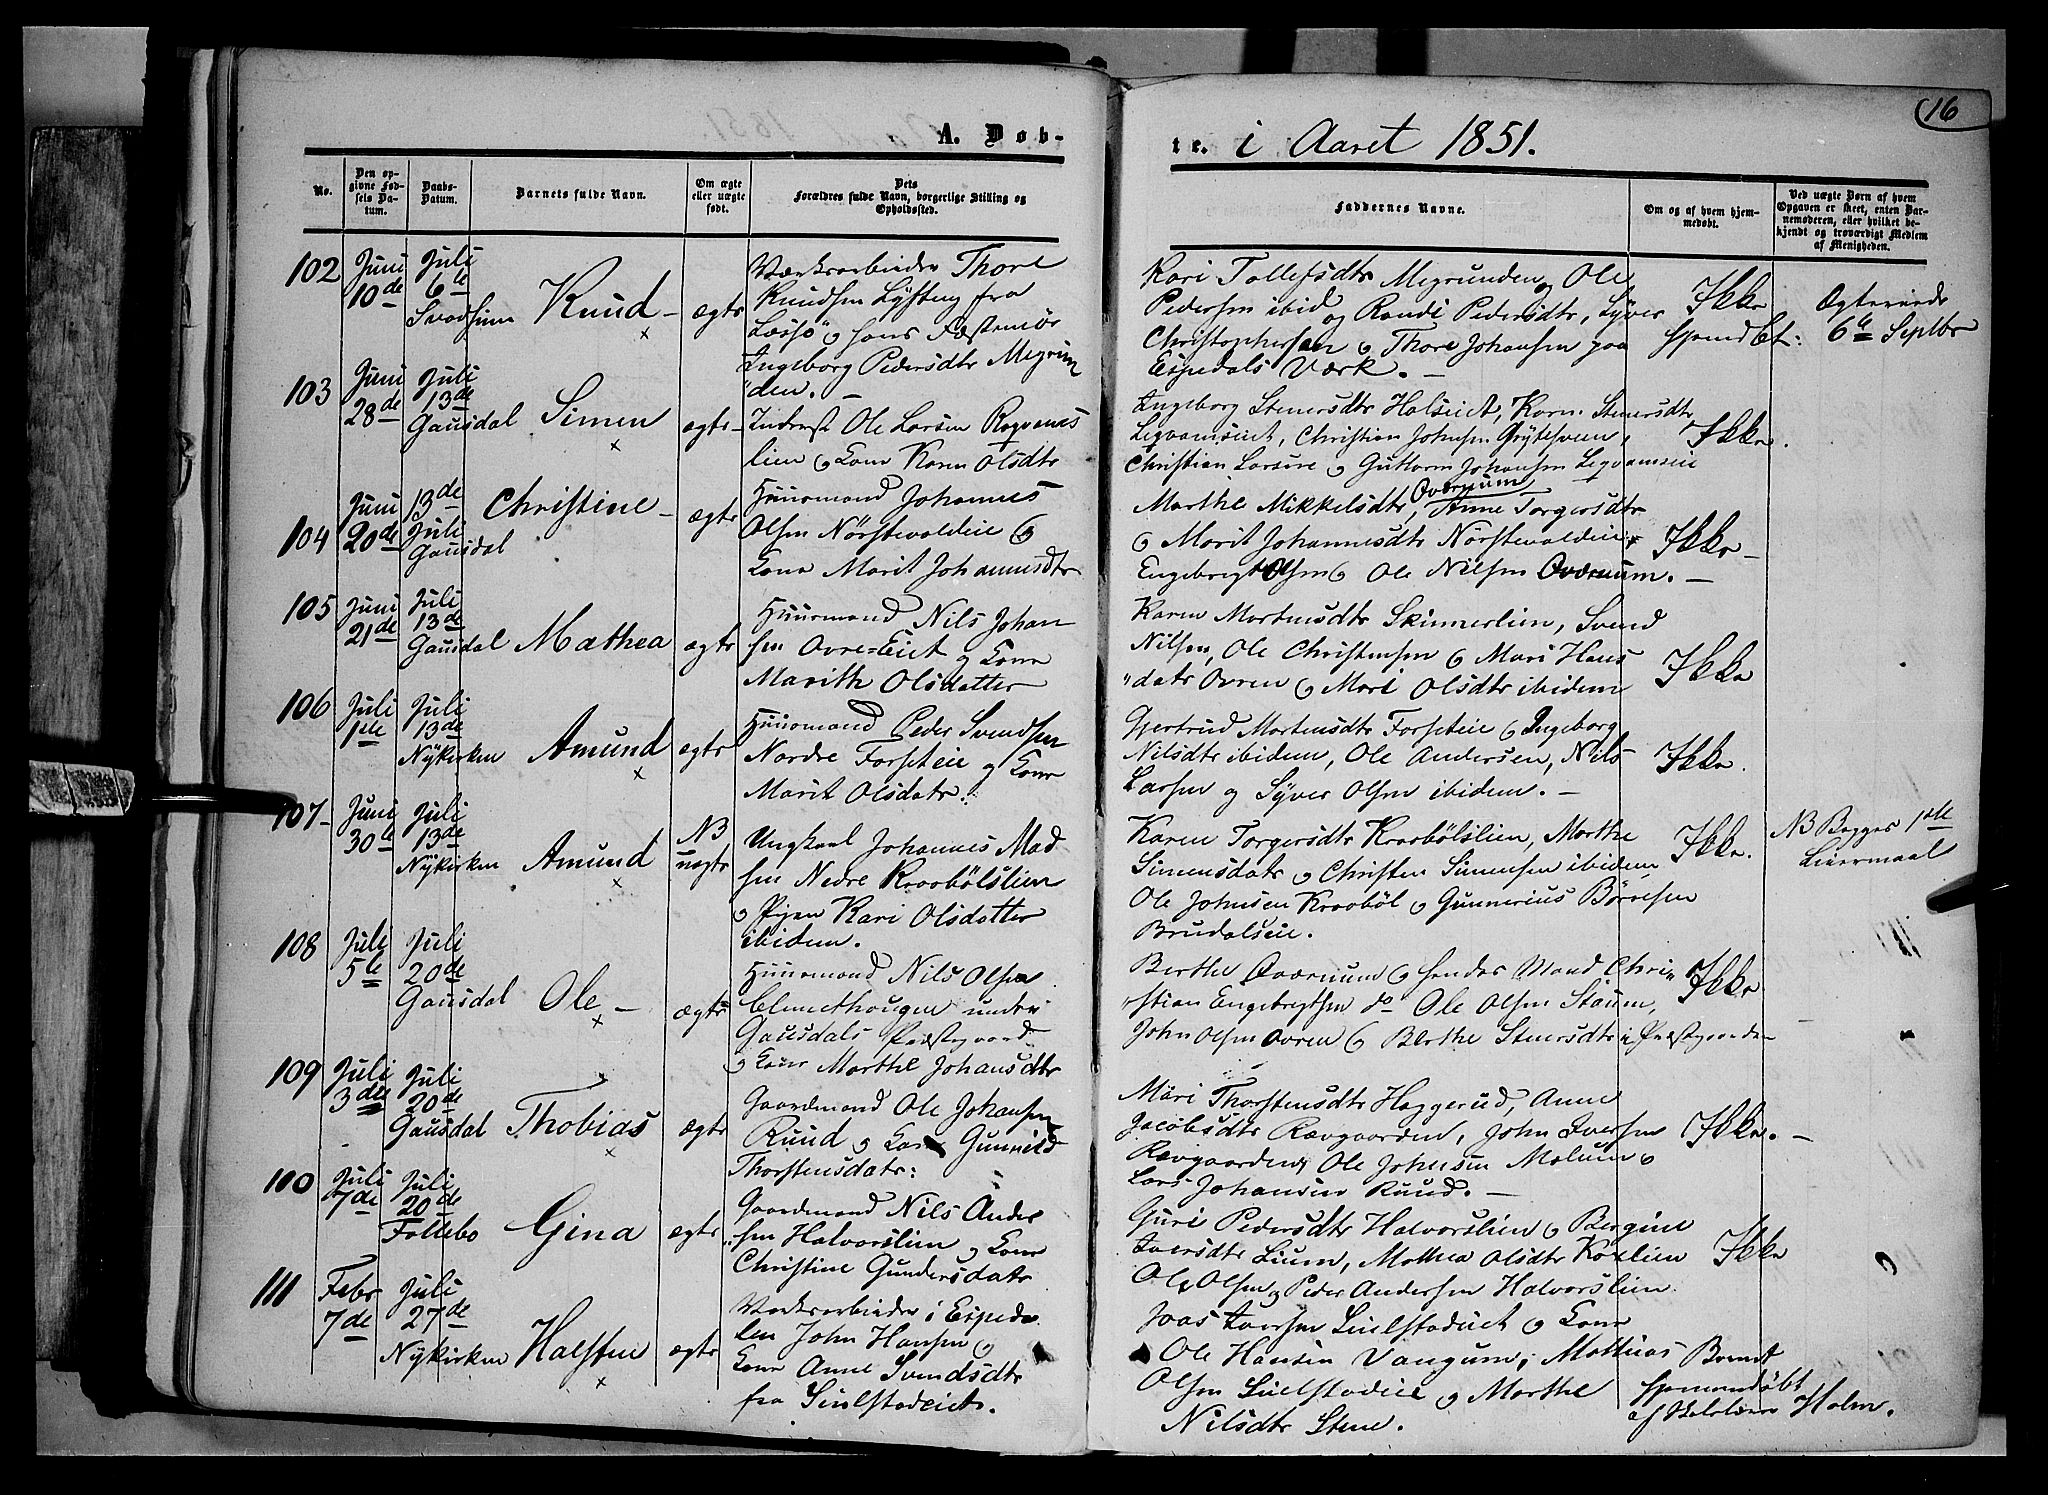 16
A. Døb-
te. i Aaret 1851.
No.
Den op-
givne Fød-
sels Da-
tum.
Daabs-
Datum.
Barnets fulde Navn.
Om ægte
eller uægte
født.
Dets
Forældres fulde Navn, borgerlige Stilling og
Opholdssted.
Faddernes Navne.
Om og af hvem hjem-
medøbt.
Ved uægte Børn af hvem
Opgaven er skeet, enten Bar-
nemoderen, eller hvilket be-
kjendt og troværdigt Medlem
af Menigheden.
102
Juni
10de
Juli
6te
Svadsum
Knud –
ægte
Værksarbeider Thore
Knudsen
fra
Læssø og hans Fæstemøe
Ingeborg Pedersdtr Megrun
"den. –
Kari Tollefsdtr Megrunden og Ole
Pedersen ibid og Randi Pedersdtr, Syver
Christophersen og Thore Johansen paa
Espedals Værk. –
Ikke
Ægteviede
6te Septbr
103
Juni
28de
Juli
13de
Gausdal
Simen
ægte
Inderst Ole Larsen
lien og Kone Karen Olsdtr
Ingeborg Stenersdtr Holseiet, Karn. Stenersdtr
Christian Johnsen
Christian Larsen og Guttorm Johansen
Ikke.
104
Juni
20de
13de
Juli
Gausdal
Christine –
ægte
Huusmand Johannes
Olsen Nørstevoldeie og
Kone Marit Johannesdtr
Marthe Mikkelsdtr, Overuum Anne Torgersdtr
og Marit Johannesdtr Nørstevoldeie,
Engebrigt Olsen og Ole Nilsen Overnum. –
Ikke –
105
Juni
21de
Juli
13de
Gausdal
Mathea
ægte
Huusmand Nils Johan
sen Ovre-Eiet og Kone
Marith Olsdatter
Karen Mortensdtr Skinnerlien, Svend
Nilsen, Ole Christensen og Mari Hans
"datr Ovren og Mari Olsdtr ibidem
Ikke
106
Juli
1ste
Juli
13de
Nykirken
Amund
ægte
Huusmand Peder Svendsen
Nordre Forseteie og Kone
Marit Olsdatr.
Gjertrud Mortensdtr Forseteie og Ingeborg
Nilsdtr ibidem, Ole Andersen, Nils
Larsen og Syver Olsen ibidem. –
Ikke.
107
Juni
30te
Juli
13de
Nykirken
Amund
NB
uægte
Ungkarl Johannes Mad
sen Nedre Kraabølslien
og Pigen Kari Olsdatter
ibidem.
Karen Torgersdtr Kraabølslien, Marthe
Simensdatr og Christen Simensen ibidem,
Ole Johnsen Kraabøl og Gunnerius Børresen
Brudalseie.
Ikke.
NB Begges 1ste
Leiermaal
108
Juli
5te
Juli
20de
Gausdal
Ole –
ægte
Huusmand Nils Olsen
Clemethaugen under
Gausdals Præstegaard
og Kone Marthe Johansdtr
Berthe Overnum og hendes Mand Chri
"stian Engebrigtsen do Ole Olsen Staum,
John Olsen Ovren og Berthe Stenersdtr i Præstegaarden
Ikke
109
Juli
3die
Juli
20de
Gausdal
Thobias
ægte
Gaardmand Ole Johansen
Ruud og Kone Gunnild
Thorstensdatr:
Mari Thorstensdtr Haggerud, Anne
Jacobsdtr Rævgaarden, John Iversen
Rævgaarden, Ole Johnsen Molum og
Lars Johansen Ruud. –
Ikke. –
110
Juli
7de
Juli
20de
Follebo
Gina
ægte
Gaardmand Nils Ander
"sen Halvorslien og Kone
Christine Gundersdatr
Guri Pedersdtr Halvorslien og Bergine
Iversdtr Lium, Mathea Olsdtr Korslien
Ole Olsen og Peder Andersen Halvorslien
Ikke
111
Febr
7de
Juli
27de
Nykirken
Halsten
ægte
Værksarbeider i Espeda
len John Hansen og
Kone Anne Svendsdtr
fra
Iversen
og Kone
Ole Hansen Vangum, Mathias
Olsen
og Marthe
Nilsdtr Stene.
Hjemmedøbt
af Skolelærer Holm.